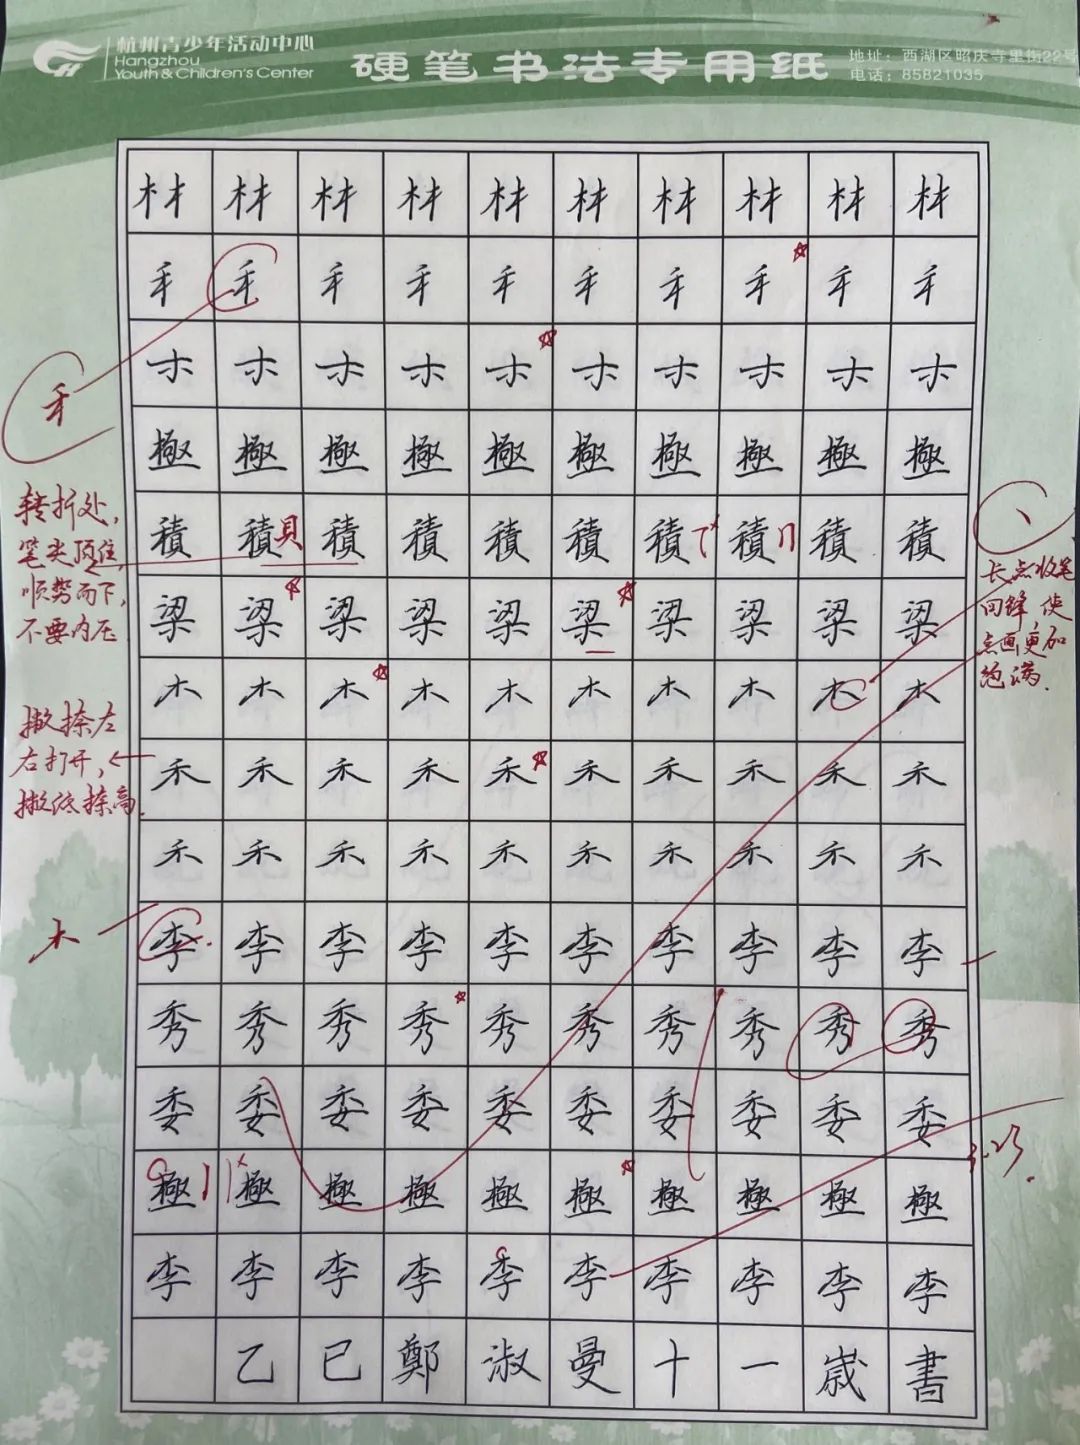 杭州青少年活动中心
Hangzhou
Youth & Children's Center
硬笔书法专用纸
地址：西湖区昭庆寺里街22号
电话：85821035
林 林 林 林 林 林 林 林 林 林
極 極 極 極 極 極 極 極 極 極
積 積 積 積 積 積 積 積 積 積
梁 梁 梁 梁 梁 梁 梁 梁 梁 梁
木 木 木 木 木 木 木 木 木 木
禾 禾 禾 禾 禾 禾 禾 禾 禾 禾
禾 禾 禾 禾 禾 禾 禾 禾 禾 禾
李 李 李 李 李 李 李 李 李 李
秀 秀 秀 秀 秀 秀 秀 秀 秀 秀
委 委 委 委 委 委 委 委 委 委
極 極 極 極 極 極 極 極 極 極
李 李 李 李 李 李 李 李 李 李
乙 已 鄭 淑 曼 十 一 歲 書
转折处，
笔尖顶住，
顺势而下，
不要内压
撇捺左
右打开，
撇低捺高
木
貝
长点收笔
回锋 使
点画更加
饱满.